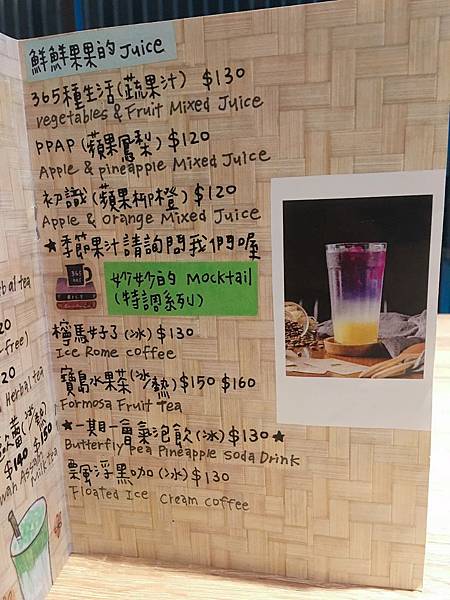 鮮鮮果果的 Juice
365種生活(蔬果汁) $130
vegetables & Fruit Mixed Juice
PPAP (蘋果鳳梨) $120
Apple & pineapple Mixed Juice
初識 (蘋果柳橙) $120
Apple & orange Mixed Juice
★季節果汁請詢問我們喔
365
妙妙的 Mocktail
(特調系列)
檸馬好了(冰) $130
Ice Rome coffee
寶島水果茶(冰/熱) $150 $160
Formosa Fruit Tea
★一期一會氣泡飲(冰) $130★
Butterfly pea Pineapple soda Drink
飄浮黑咖(冰) $130
Floated Ice cream coffee
Herbal tea
$140 $150